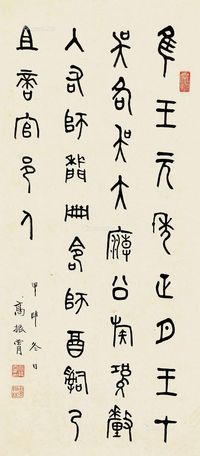 隹王元年正月王才
吳各吳大廟公族釐
入右師冊令師酉嗣乃
且啻官邑人
甲申冬日
高振霄